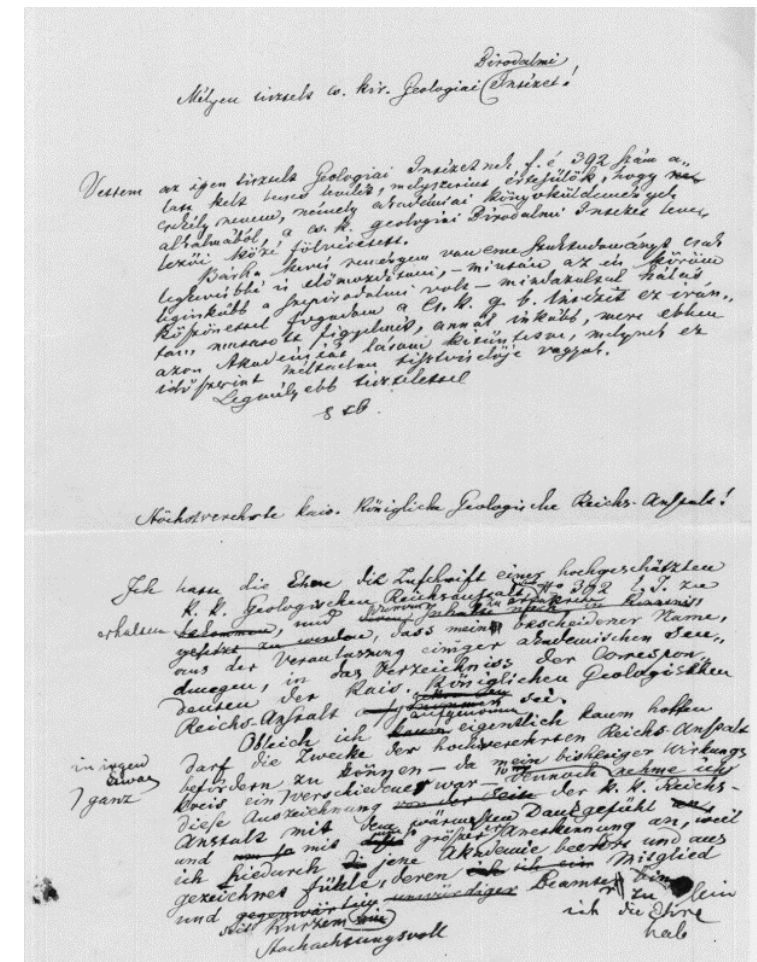 Birodalmi
Mélyen tisztelt cs. kir. Geologiai Intézet!
Vettem az igen tisztelt Geologiai Intézetnek f. é 392 szám a„
latt kelt becses levelét, melyszerint értesülök, hogy
csekély nevem, némely akadémiai könyvküldemények
alkalmából, a cs. k. geologiai Birodalmi Intézet leve„
lezői közé fölvétetett.
Bárha kevés reményem van eme szaktudományt csak
legkevésbbé is előmozdítani, – miután az én köröm
leginkább a szépirodalmi volt – mindazáltal hálás
köszönettel fogadom a cs. k. g. b. Intézet ez irán„
tam mutatott figyelmét, annál inkább, mert ebben
azon Akadémiát látom kitüntetve, melynek ez
idő szerint méltatlan tisztviselője vagyok.
Legmélyebb tisztelettel
Höchstverehrte kais. Königliche Geologische Reichs-Anstalt!
Ich hatte die Ehre die Zuschrift einer hochgeschätzten
K. K. Geologischen Reichsanstalt No 392 l. J. zu
erhalten bekommen, und
gesetzt zu werden, dass mein bescheidener Name,
aus der Veranlassung einiger akademischen Sen„
dungen, in das Verzeichniss der Correspon„
denten der Kais. Königlichen Geologischen
Reichs-Anstalt aufgenommen sei.
Obleich ich kaum eigentlich kaum hoffen
darf die Zwecke der hochverehrten Reichs-Anstalt
in irgend Etwas befördern zu können – da mein bisheriger Wirkungs
ganz kreis ein verschiedener war – dennoch nehme ich
diese Auszeichnung von der Seite der K. K. Reichs-
Anstalt mit dem wärmsten Dankgefühl
und mit größter Anerkennung an, weil
ich hiedurch jene Akademie beehrt und aus
gezeichnet fühle, deren Mitglied
und gegenwärtig unwürdiger Beamter
seit Kurzem zu sein
ich die Ehre
habe
Hochachtungsvoll